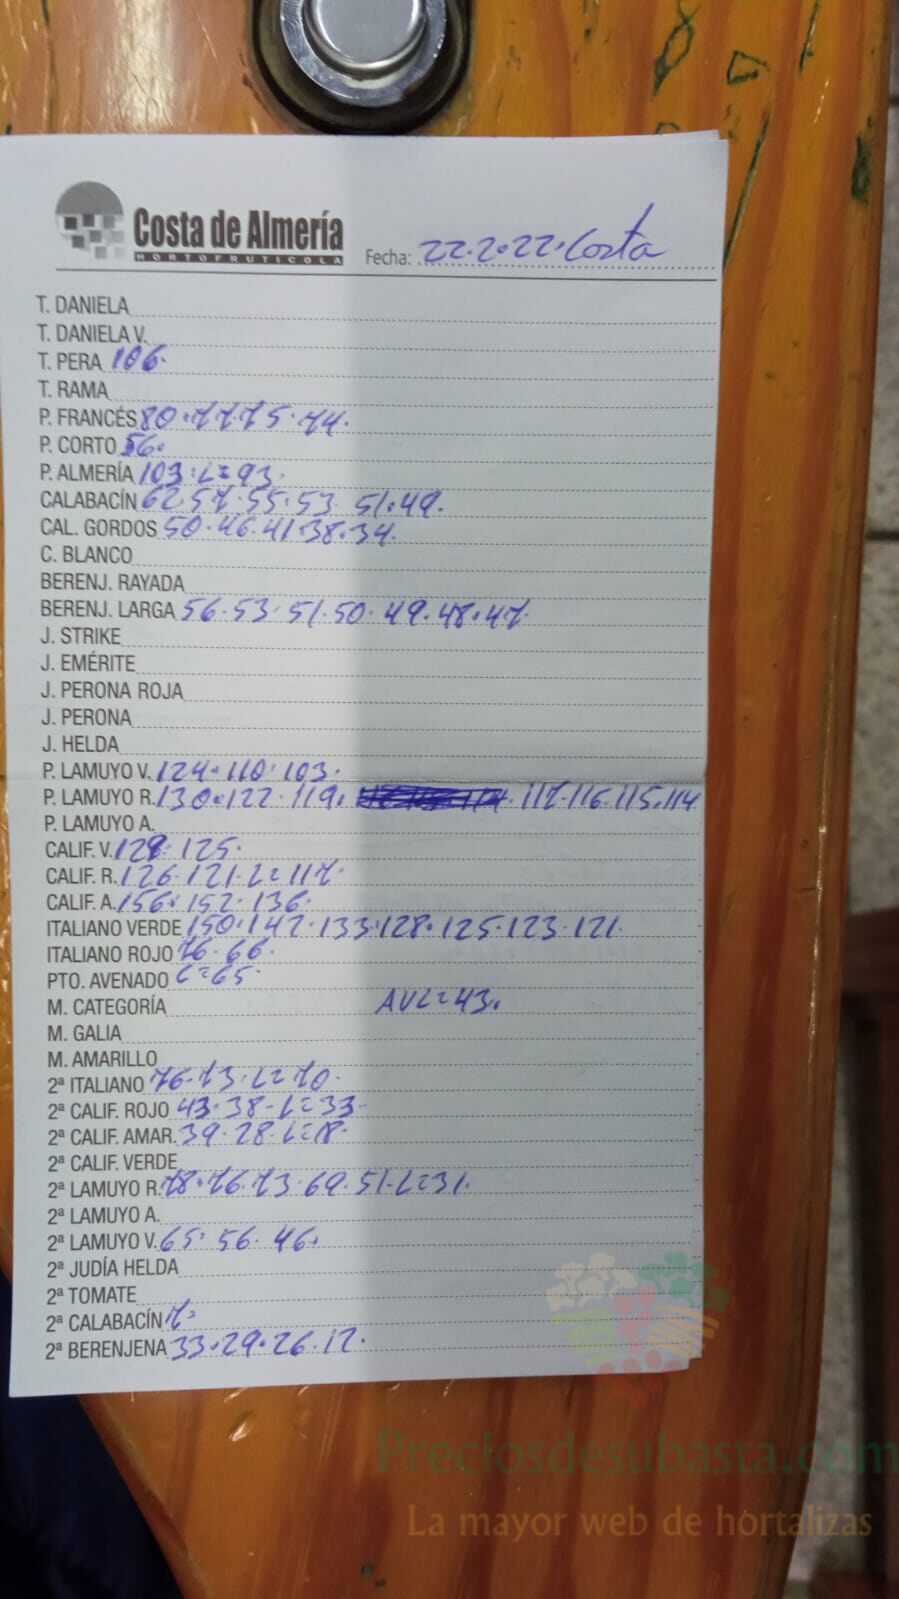 Costa de Almería
HORTOFRUTICOLA
Fecha: 22.2.22. Costa
T. DANIELA
T. DANIELA V.
T. PERA 106.
T. RAMA
P. FRANCÉS 80.77.75.74.
P. CORTO 56.
P. ALMERÍA 103.L=93.
CALABACÍN 62.57.55.53 51.49.
CAL. GORDOS 50.46.41.38.34.
C. BLANCO
BERENJ. RAYADA
BERENJ. LARGA 56.53.51.50.49.48.47.
J. STRIKE
J. EMÉRITE
J. PERONA ROJA
J. PERONA
J. HELDA
P. LAMUYO V. 124.110.103.
P. LAMUYO R. 130.122.119. 117.116.115.114
P. LAMUYO A.
CALIF. V. 129.125.
CALIF. R. 126.121.L=117.
CALIF. A. 156.152.136.
ITALIANO VERDE 150.142.133.128.125.123.121.
ITALIANO ROJO 76.66.
PTO. AVENADO L=65.
M. CATEGORÍA AVL=43.
M. GALIA
M. AMARILLO
2ª ITALIANO 76.73.L=70.
2ª CALIF. ROJO 43.38.L=33.
2ª CALIF. AMAR. 39.28.L=18.
2ª CALIF. VERDE
2ª LAMUYO R. 78.76.73.69.51.L=31.
2ª LAMUYO A.
2ª LAMUYO V. 65.56.46.
2ª JUDÍA HELDA
2ª TOMATE
2ª CALABACÍN 7.
2ª BERENJENA 33.29.26.12.
Preciosdesubasta.com
La mayor web de hortalizas